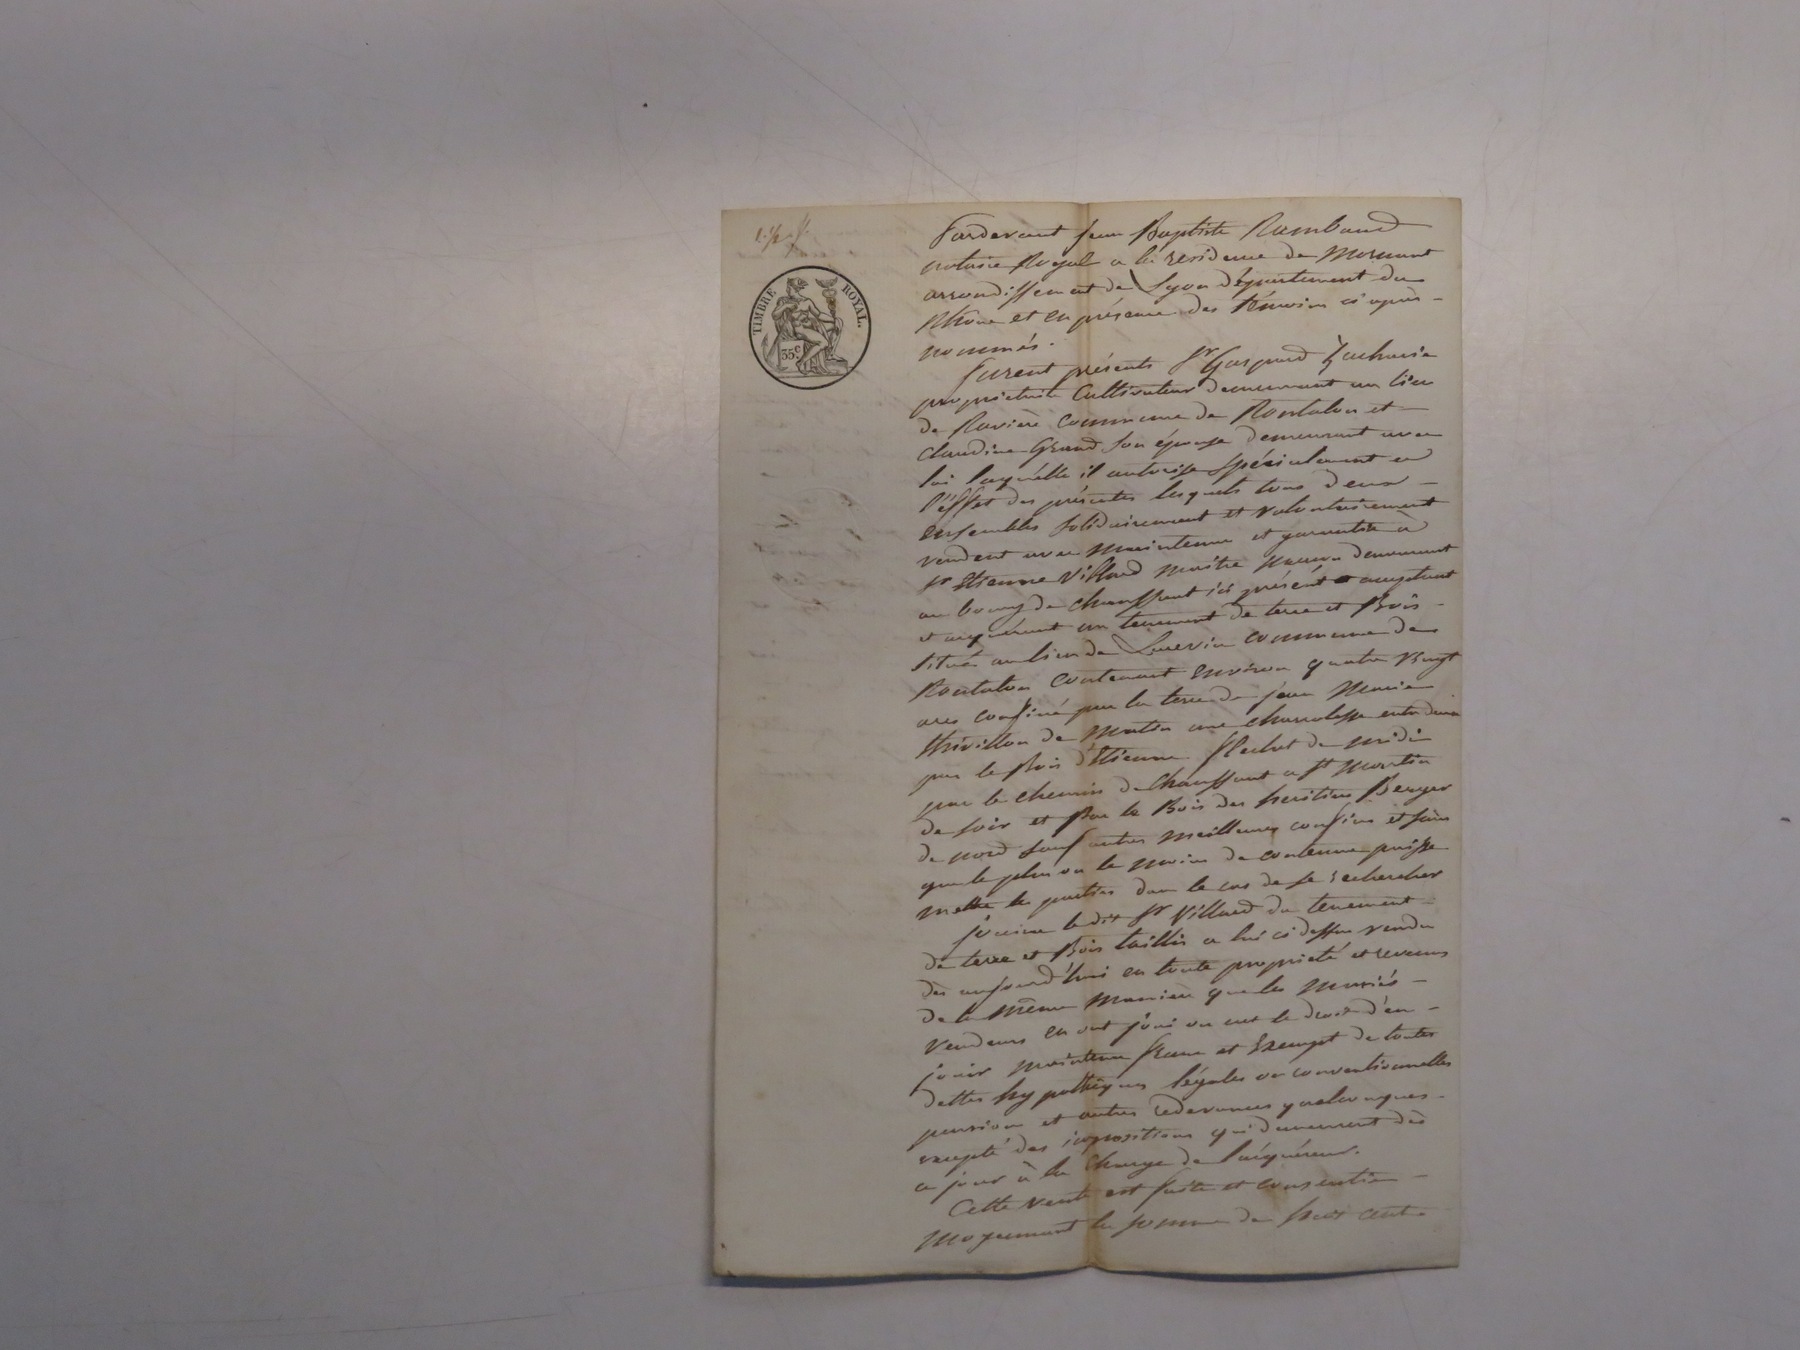 TIMBRE ROYAL.
35 c
Pardevant Jean Baptiste Rambaud
notaire Royal a la residence de Mornant
arrondissement de Lyon département du
Rhône et en présence des témoins ci après
nommés.
furent présents Sr Gaspard Zacharie
propriétaire Cultivateur demeurant au lieu
de Ravière commune de Rontalon et
Claudine Grand son épouse demeurant avec
lui laquelle il autorise spécialement a
l'effet des présentes lesquels tous deux
ensembles solidairement et volontairement
vendent avec maintenue et garantie à
Sr Etienne Villard maître maçon demeurant
au bourg de chaussant ici présent acceptant
et acquérant un tenement de terre et Bois
situé au lieu de commune de
Rontalon contenant environ quatre vingt
ares confiné par la terre de jean Marie
thivillon de matin une charralesse entredeux
par le Bois d'Etienne flechet de midi
par le chemin de Chaussant a St Martin
de soir et par le Bois des heritiers Berger
de nord sauf autres meilleures confins et sans
que le plus ou le moins de contenue puisse
mettre les parties dans le cas de se rechercher
jouira le dit Sr Villard du tenement
de terre et Bois taillis a lui ci dessus vendu
dès aujourd'hui en toute proprieté et revenus
de la même manière que les mariés
vendeurs en ont joui ou eut le droit d'en
jouir maintenu franc et Exempt de toutes
dettes hypothèques légales ou conventionnelles
pension et autres redevances quelconques
excepté des impositions qui demeurent dès
ce jour à la charge de l'acquéreur.
Cette vente est faite et consentie
moyennant la somme de huit cents